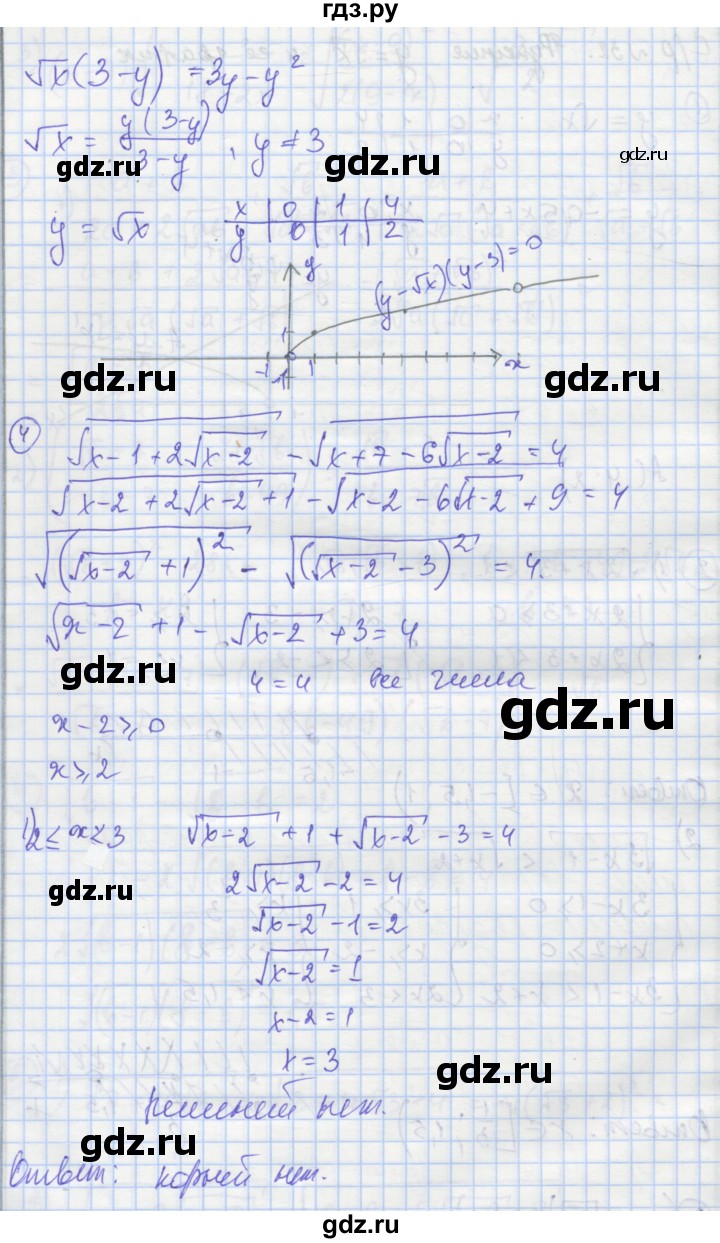 гдз.ру
√x(3-y) = 3y - y²
√x = y(3-y)/3-y , y ≠ 3
gdz.ru gdz.ru gdz.ru
y = √x
x | 0 | 1 | 4
y | 0 | 1 | 2
y
(y-√x)(y-3) = 0
1
-1 0 1 x
-1
gdz.ru gdz.ru
④ √(x-1+2√(x-2)) - √(x+7-6√(x-2)) = 4
√(x-2+2√(x-2)+1) - √(x-2-6√(x-2)+9) = 4
gdz.ru gdz.ru
√((√(x-2)+1)²) - √((√(x-2)-3)²) = 4.
√(x-2) + 1 - √(x-2) + 3 = 4
gdz.ru
4 = 4 все числа
gdz.ru
x - 2 ≥ 0
x ≥ 2
1) 2 ≤ x < 3 √(x-2) + 1 + √(x-2) - 3 = 4
gdz.ru
2√(x-2) - 2 = 4
√(x-2) - 1 = 2
gdz.ru
√(x-2) = 1
x - 2 = 1
x = 3
gdz.ru
решений нет.
gdz.ru
Ответ: корней нет.
gdz.ru